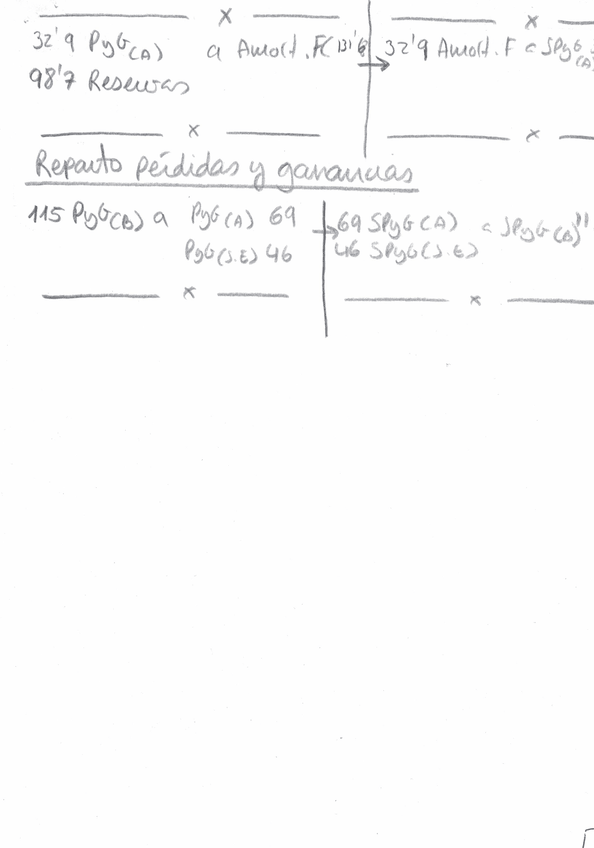 x x
32'9 PyG(A) a Amort.F(131'6 → 32'9 Amort.F a SPyG(A)
98'7 Reservas
x x
Reparto pérdidas y ganancias
115 PyG(B) a PyG(A) 69 → 69 SPyG(A) a SPyG(B)
PyG(S.E) 46 46 SPyG(S.E)
x x